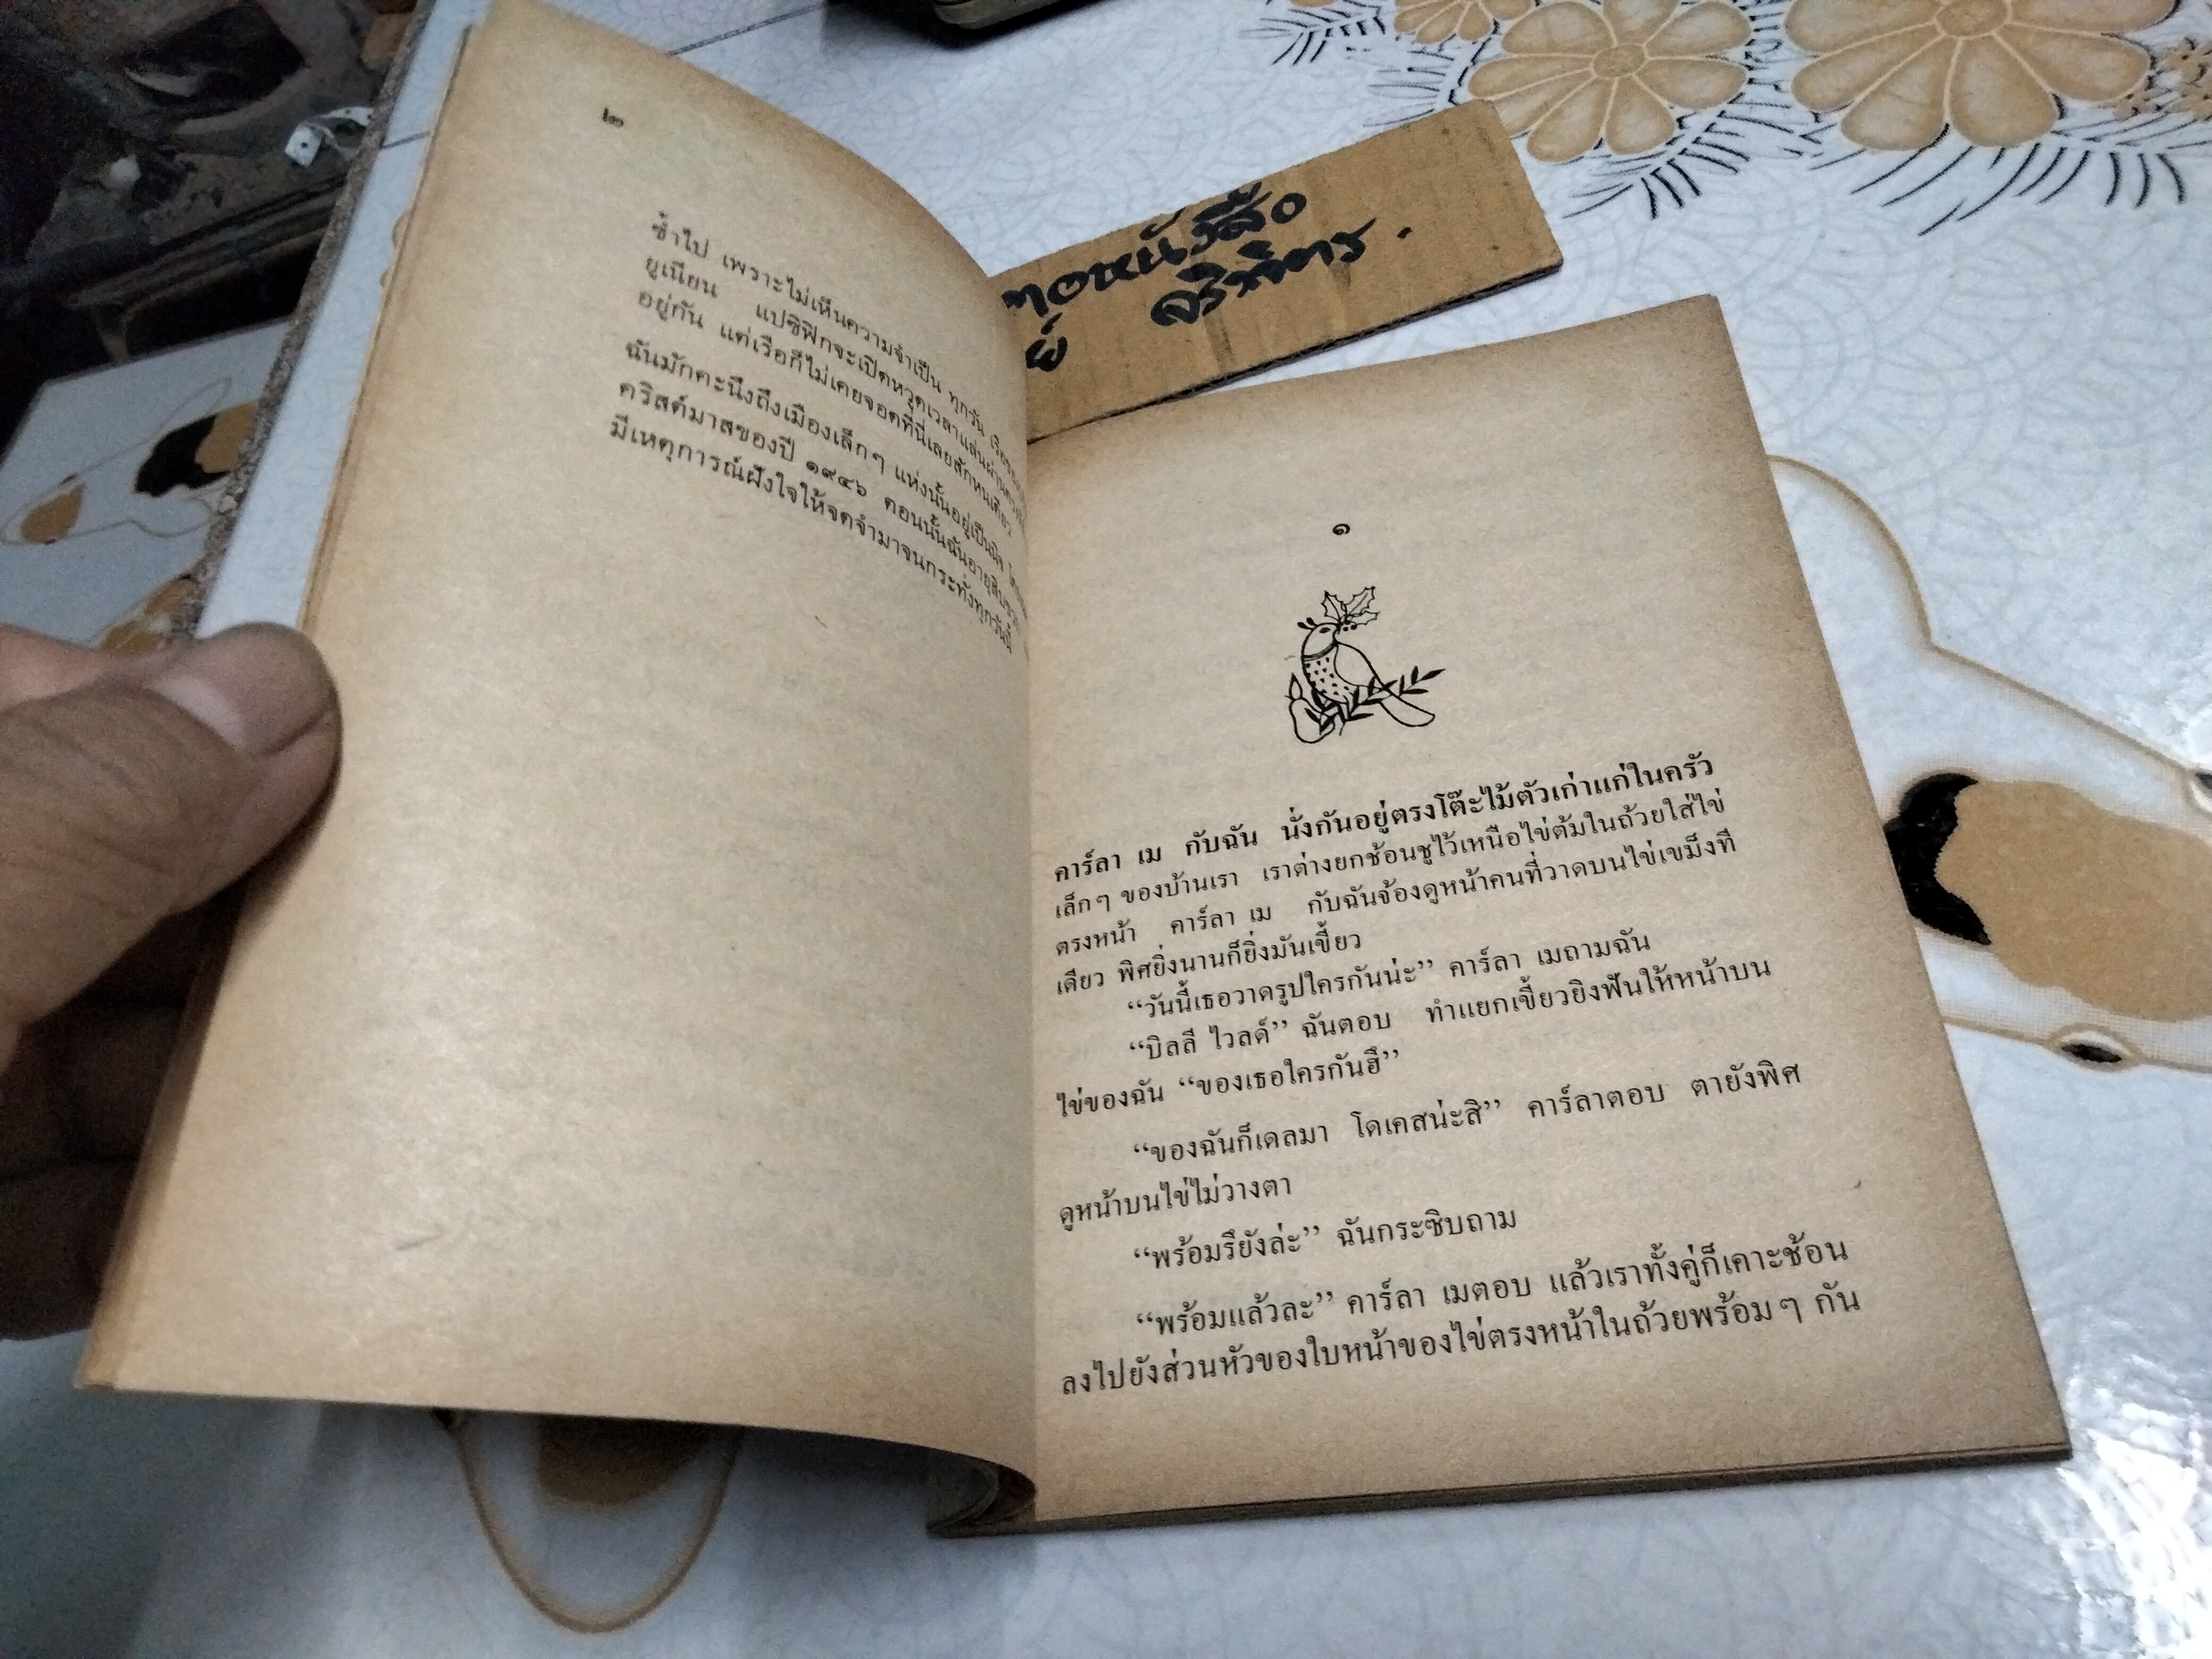 ๒
ซ้ำไป เพราะไม่เห็นความจำเป็น ทุกวัน
ยูเนียน แปซิฟิกจะเปิดหวูดเวลาแล่นผ่าน
อยู่กัน แต่เรือก็ไม่เคยจอดที่นี่เลยสักหนเดียว
ฉันมักคะนึงถึงเมืองเล็กๆ แห่งนั้นอยู่เป็นนิจ
คริสต์มาสของปี ๑๙๔๖ ตอนนั้นฉันอายุสิบ
มีเหตุการณ์ฝังใจให้จดจำมาจนกระทั่งทุกวันนี้
หนังสือ
๑
คาร์ลา เม กับฉัน นั่งกันอยู่ตรงโต๊ะไม้ตัวเก่าแก่ในครัว
เล็กๆ ของบ้านเรา เราต่างยกช้อนชูไว้เหนือไข่ต้มในถ้วยใส่ไข่
ตรงหน้า คาร์ลา เม กับฉันจ้องดูหน้าคนที่วาดบนไข่เขม็งที
เดียว พิศยิ่งนานก็ยิ่งมันเขี้ยว
“วันนี้เธอวาดรูปใครกันน่ะ” คาร์ลา เมถามฉัน
“บิลลี ไวลด์” ฉันตอบ ทำแยกเขี้ยวยิงฟันให้หน้าบน
ไข่ของฉัน “ของเธอใครกันฮึ”
“ของฉันก็เดลมา โดเคสน่ะสิ” คาร์ลาตอบ ตายังพิศ
ดูหน้าบนไข่ไม่วางตา
“พร้อมรึยังล่ะ” ฉันกระซิบถาม
“พร้อมแล้วละ” คาร์ลา เมตอบ แล้วเราทั้งคู่ก็เคาะช้อน
ลงไปยังส่วนหัวของใบหน้าของไข่ตรงหน้าในถ้วยพร้อมๆ กัน